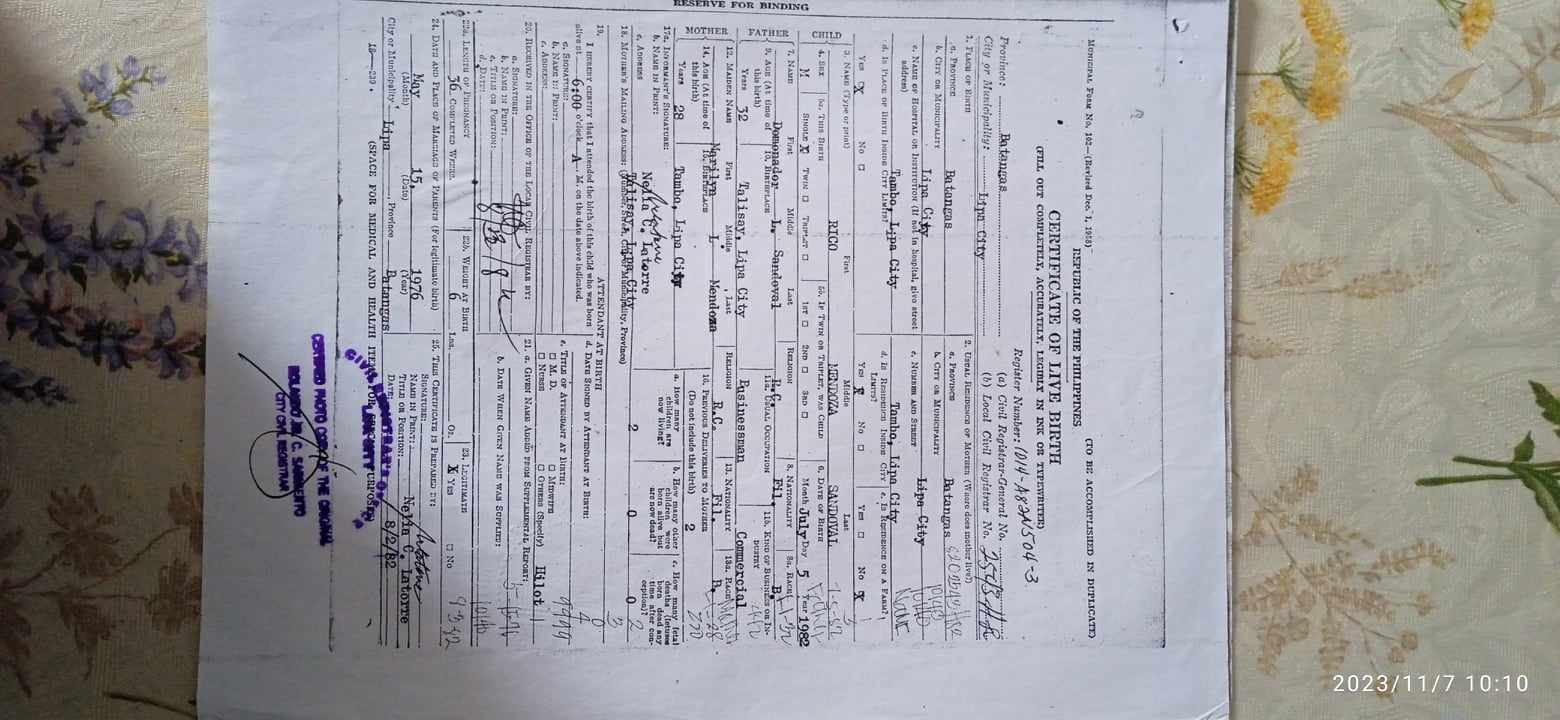 RESERVE FOR BINDING
MUNICIPAL FORM NO. 102—(Revised Dec. 1, 1958)
(TO BE ACCOMPLISHED IN DUPLICATE)
REPUBLIC OF THE PHILIPPINES
CERTIFICATE OF LIVE BIRTH
(FILL OUT COMPLETELY, ACCURATELY, LEGIBLY IN INK OR TYPEWRITER)
Register Number:
Province: Batangas (a) Civil Registrar-General No.
City or Municipality: Lipa City (b) Local Civil Registrar No.
1. PLACE OF BIRTH
a. PROVINCE Batangas
b. CITY OR MUNICIPALITY Lipa City
c. NAME OF HOSPITAL OR INSTITUTION (If not in hospital, give street address) Tambo, Lipa City
d. IS PLACE OF BIRTH INSIDE CITY LIMITS?
YES X NO
2. USUAL RESIDENCE OF MOTHER (Where does mother live?)
a. PROVINCE Batangas
b. CITY OR MUNICIPALITY Lipa City
c. NUMBER AND STREET Tambo, Lipa City
d. IS RESIDENCE INSIDE CITY LIMITS? YES X NO
e. IS RESIDENCE ON A FARM? YES NO X
CHILD
3. NAME (Type or print) First Middle Last
RICO MENDOZA SANDOVAL
4. SEX M
5a. THIS BIRTH SINGLE X TWIN TRIPLET
5b. IF TWIN OR TRIPLET, WAS CHILD 1ST 2ND 3RD
6. DATE OF BIRTH Month July Day 5 Year 1982
FATHER
7. NAME First Middle Last
Domonador L. Sandoval
RELIGION R.C.
8. NATIONALITY Fil.
8a. RACE B.
9. AGE (At time of this birth) 32 Years
10. BIRTHPLACE Talisay, Lipa City
11a. USUAL OCCUPATION Businessman
11b. KIND OF BUSINESS OR INDUSTRY Commercial
MOTHER
12. MAIDEN NAME First Middle Last
Marilyn L. Mendoza
RELIGION R.C.
13. NATIONALITY Fil.
13a. RACE B.
14. AGE (At time of this birth) Years 28
15. BIRTHPLACE Tambo, Lipa City
16. PREVIOUS DELIVERIES TO MOTHER (Do not include this birth) 2
a. How many children are now living? 2
b. How many other children were born alive but are now dead? 0
c. How many fetal deaths (fetuses born dead any time after conception)? 0
17a. INFORMANT'S SIGNATURE:
b. NAME IN PRINT: Nelia C. Latorre
c. ADDRESS
18. MOTHER'S MAILING ADDRESS: Talisay, Lipa City
19. ATTENDANT AT BIRTH
I HEREBY CERTIFY that I attended the birth of this child who was born alive at 6:00 o'clock A. M. on the date above indicated.
a. SIGNATURE:
b. NAME IN PRINT:
c. ADDRESS:
d. DATE SIGNED BY ATTENDANT AT BIRTH:
e. TITLE OF ATTENDANT AT BIRTH:
M. D. MIDWIFE
NURSE OTHERS (Specify) Hilot
20. RECEIVED IN THE OFFICE OF THE LOCAL CIVIL REGISTRAR BY:
a. SIGNATURE:
b. NAME IN PRINT:
c. TITLE OR POSITION:
d. DATE:
21. a. GIVEN NAME ADDED FROM SUPPLEMENTAL REPORT:
b. DATE WHEN GIVEN NAME WAS SUPPLIED:
22a. LENGTH OF PREGNANCY 36 COMPLETED WEEKS
22b. WEIGHT AT BIRTH 6 LBS. OZ.
23. LEGITIMATE X YES NO
24. DATE AND PLACE OF MARRIAGE OF PARENTS (For legitimate birth)
May 15, 1976
(Month) (Date) (Year)
City or Municipality Lipa, Province Batangas
25. THIS CERTIFICATE IS PREPARED BY:
SIGNATURE:
NAME IN PRINT: Nelia C. Latorre
TITLE OR POSITION:
DATE: 8/2/82
(SPACE FOR MEDICAL AND HEALTH ITEMS FOR SPECIAL PURPOSES)
CERTIFIED PHOTO COPY OF THE ORIGINAL
ROLANDO JR. C. SARMIENTO
CITY CIVIL REGISTRAR
2023/11/7 10:10